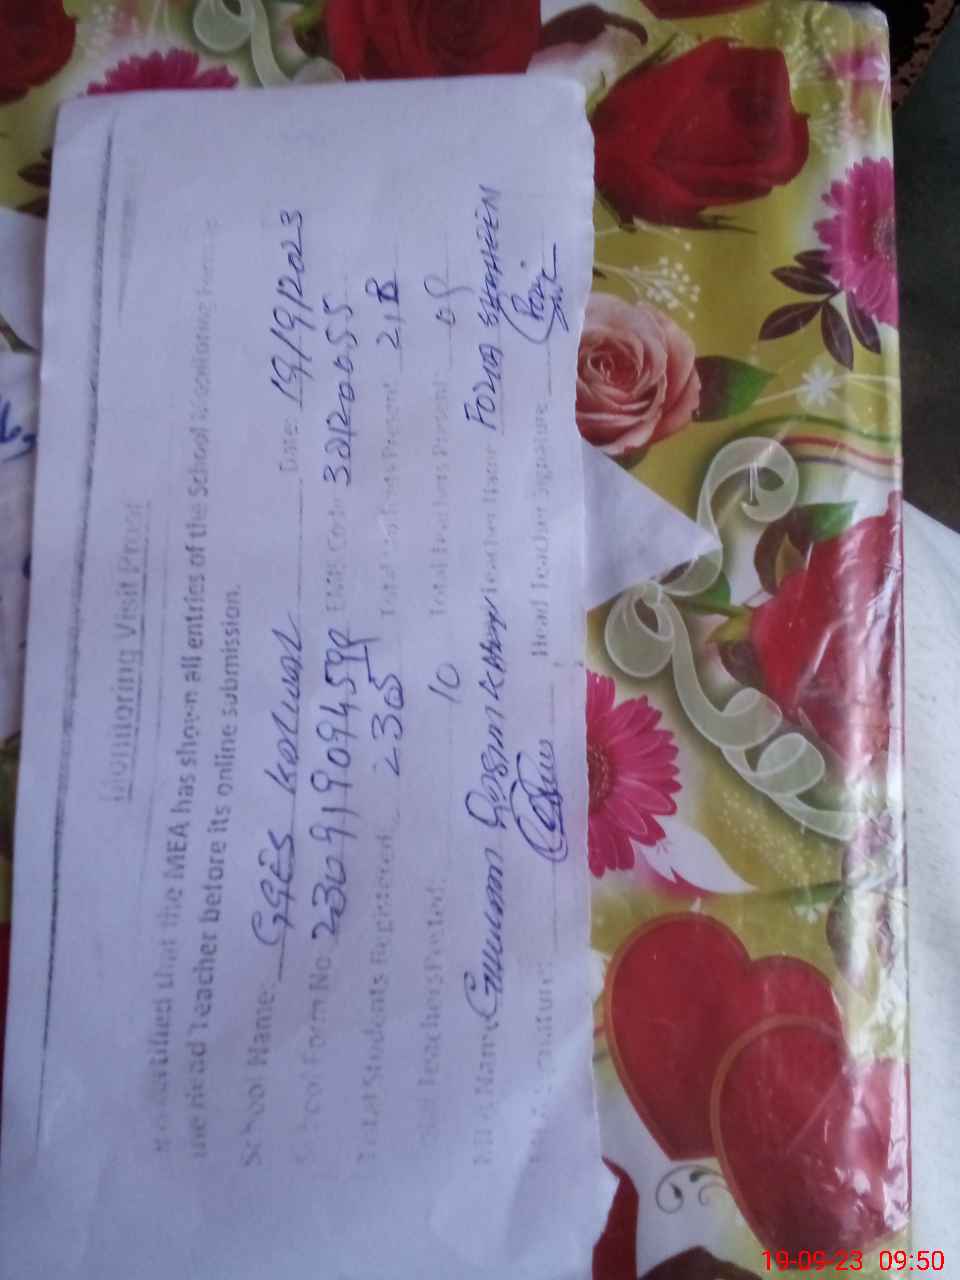 Monitoring Visit Proof
It is certified that the MEA has shown all entries of the School Monitoring Form
the Head Teacher before its online submission.
School Name: GGES KOLUAL Date: 19/9/2023
School Form No: EMIS Code
Total Students Registered: 2305 Total Students Present: 218
Total Teachers Posted: 10 Total Teachers Present: 09
MEA Name: Teacher Name: FOZIA
MEA Signature: Head Teacher Signature:
19-09-23 09:50